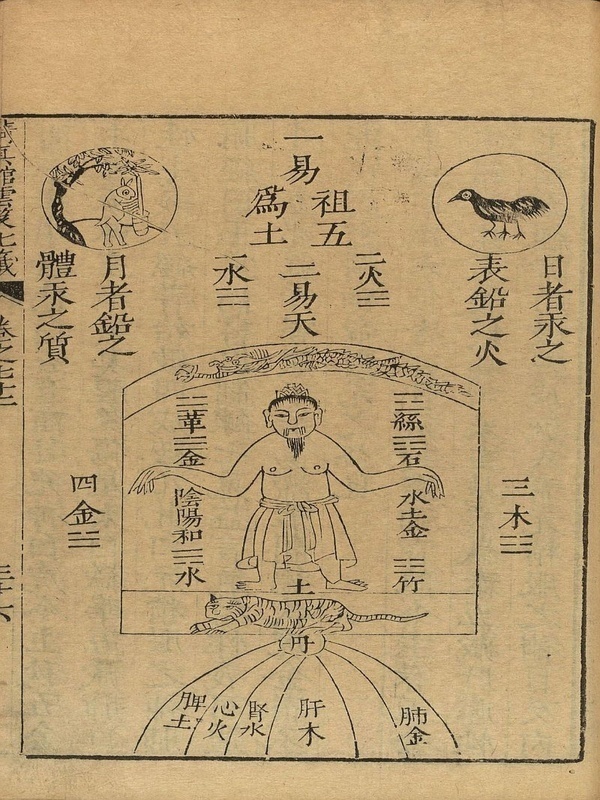 日者汞之
表鉛之火
一易
祖五
為土
二火
二易天
一水
月者鉛之
體汞之質
三木
絲
石
水土金
竹
革
金
陰陽和
水
四金
土
丹
肺金
肝木
腎水
心火
脾土
真館雲笈七籤
卷之七十二
三十六